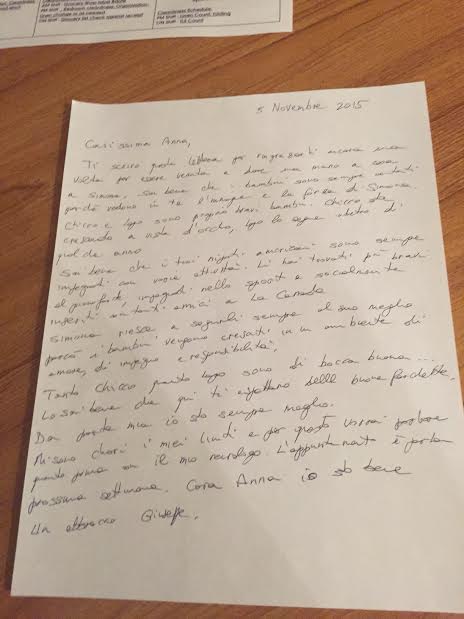 5 Novembre 2015
Carissima Anna,
Ti scrivo questa lettera per ringraziarti ancora una
volta per essere venuta a dare una mano a casa
a Simona. Sai bene che i bambini sono sempre contenti
perché vedono in te l'energia e la forza di Simona.
Chicco e Ugo sono proprio bravi bambini. Chicco sta
crescendo a vista d'occhio, Ugo lo segue dietro di
qualche anno.
Sai bene che i tuoi nipoti americani sono sempre
impegnati con varie attività. Li hai trovati più bravi
al pianoforte, impegnati nello sport e socialmente
inseriti con tanti amici a La Canada
Simona riesce a seguirli sempre al suo meglio
perché i bambini vengono cresciuti in un ambiente di
amore, di impegno e responsabilità.
Tanto Chicco quanto Ugo sono di bocca buona...
Lo sai bene che qui ti aspettano delle buone forchette.
Da parte mia io sto sempre meglio.
Mi sono chiari i miei limiti e per questo vorrei parlare
quanto prima con il mio neurologo. L'appuntamento è per la
prossima settimana. Cara Anna io sto bene
Un abbraccio Giuseppe.